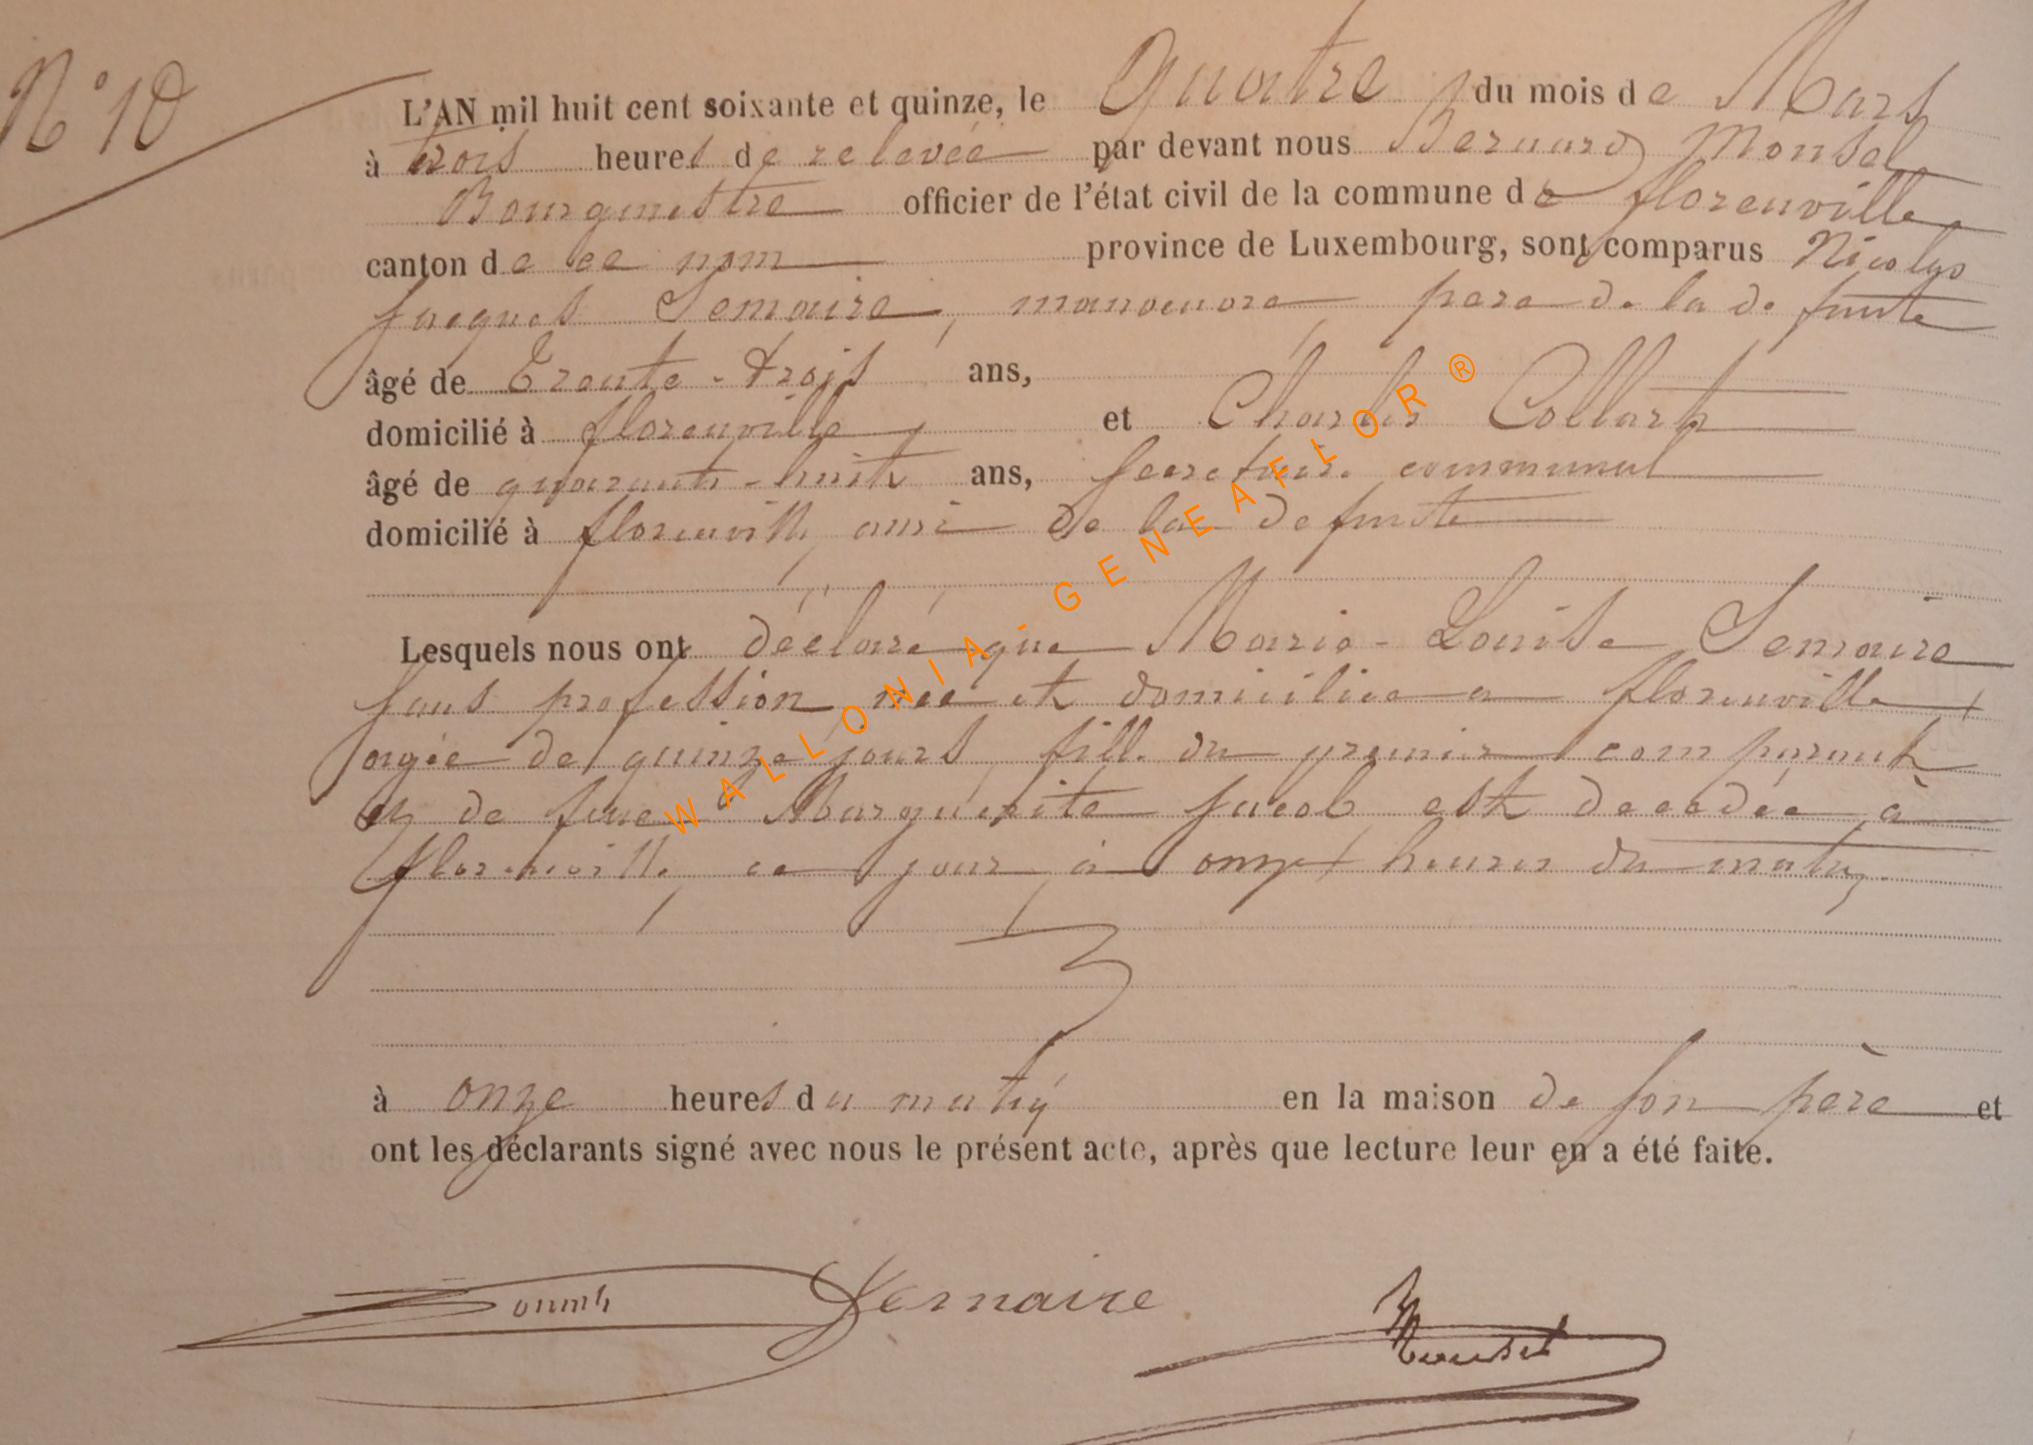 N° 10
L'AN mil huit cent soixante et quinze, le Quatre du mois de Mars
à trois heures de relevée par devant nous Bernard Monsel
Bourgmestre officier de l'état civil de la commune de florenville
canton de ce nom province de Luxembourg, sont comparus Nicolas
Jacques Lemaire, manoeuvre, pere de la defunte
âgé de Trente-trois ans,
domicilié à florenville, et Charles Collart
âgé de quarante-huit ans, secretaire communal
domicilié à florenville, ami de la defunte
Lesquels nous ont déclaré que Marie-Louise Lemaire
sans profession, née et domiciliée a florenville
agée de quinze jours, fille du premier comparant
et de feue Marguerite Jacob est decedée à
florenville, ce jour à onze heures du matin.
à onze heures du matin en la maison de son père et
ont les déclarants signé avec nous le présent acte, après que lecture leur en a été faite.
Lemaire
Monsel
WALLONIA-GENEAFLOR®